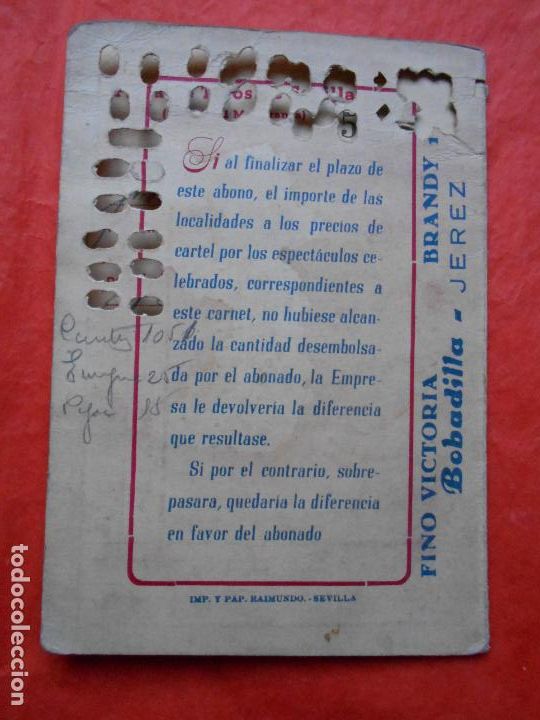 5
Si al finalizar el plazo de
este abono, el importe de las
localidades a los precios de
cartel por los espectáculos ce-
lebrados, correspondientes a
este carnet, no hubiese alcan-
zado la cantidad desembolsa-
da por el abonado, la Empre-
sa le devolvería la diferencia
que resultase.
Si por el contrario, sobre-
pasara, quedaría la diferencia
en favor del abonado
IMP. Y PAP. RAIMUNDO.-SEVILLA
FINO VICTORIA BRANDY
Bobadilla - JEREZ
todocoleccion